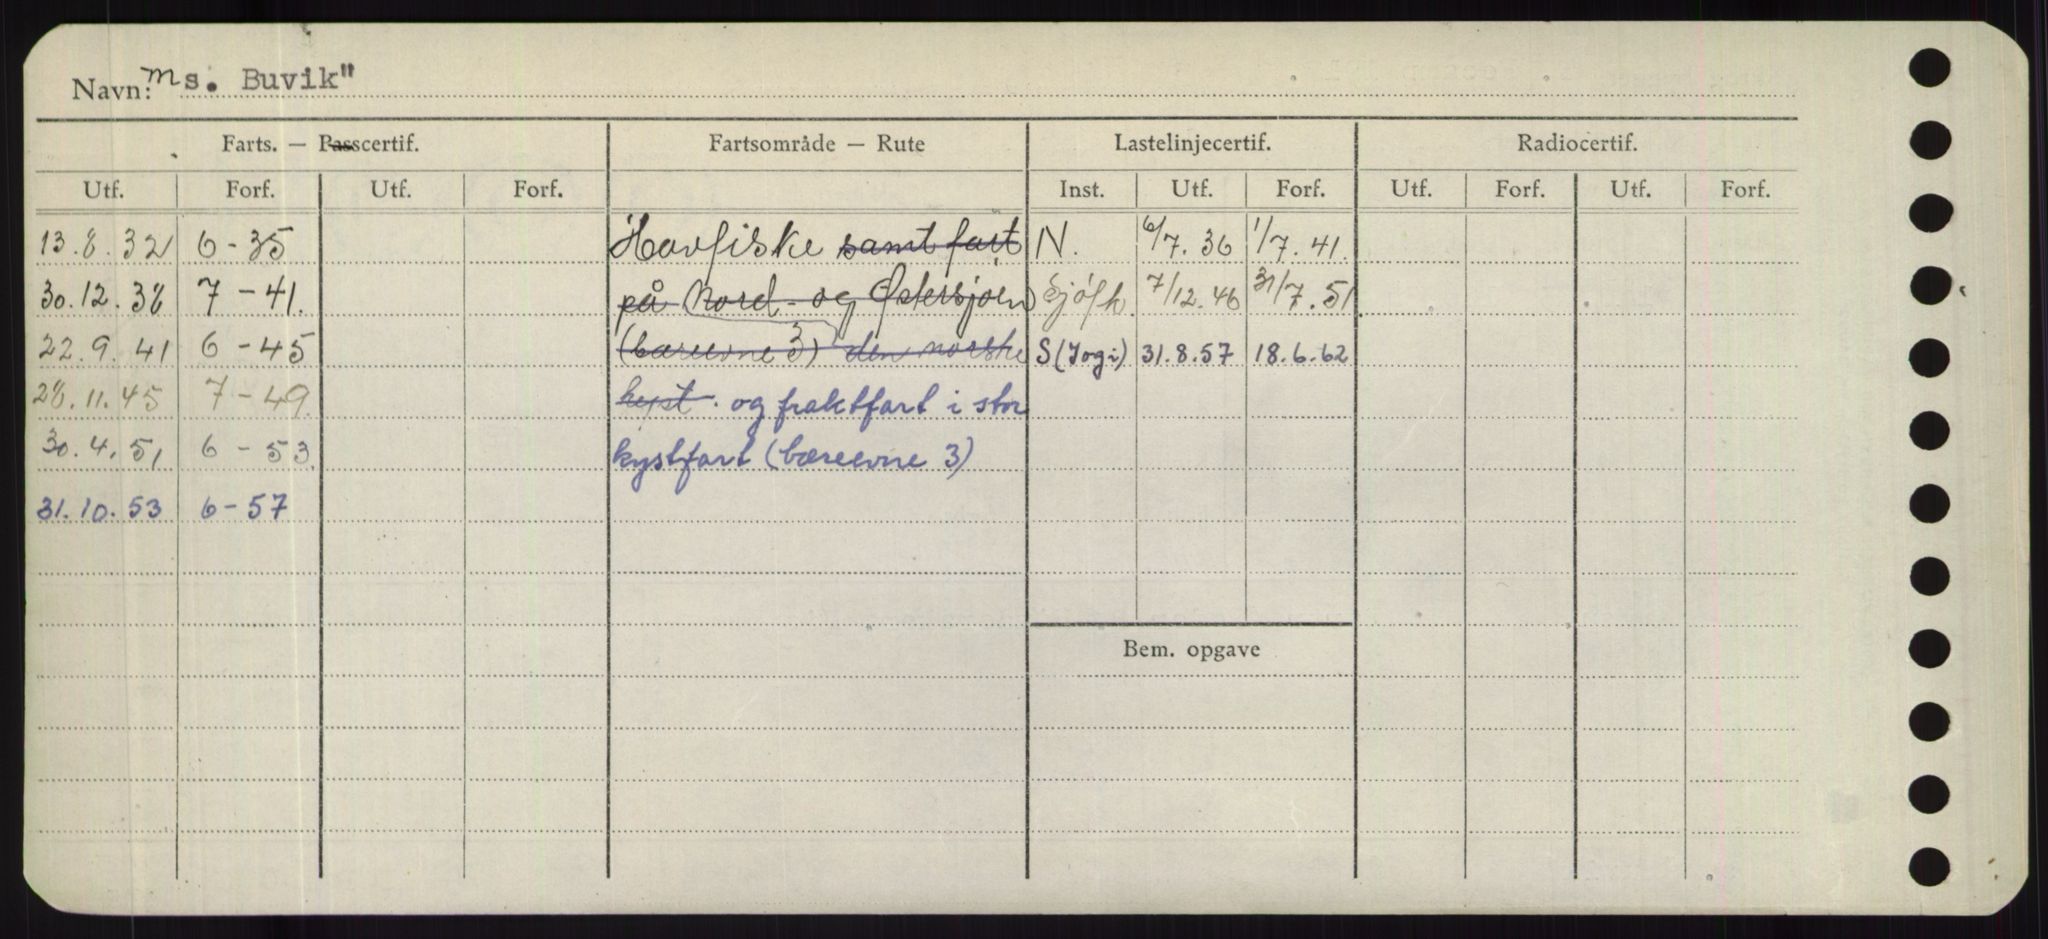 Navn: Ms. Buvik"
Farts. — Passcertif. Fartsområde — Rute Lastelinjecertif. Radiocertif.
Utf. Forf. Utf. Forf. Inst. Utf. Forf. Utf. Forf. Utf. Forf.
13.8.32 6-35 Havfiske samt fart N. 6/7.36 1/7.41.
30.12.38 7-41. på Nord- og Østersjøen Sjøfk. 7/12.46 31/7.51
22.9.41 6-45 (bæreevne 3) den norske S(Jogi) 31.8.57 18.6.62
28.11.45 7-49 kyst. og fraktfart i stor
30.4.51 6-53. kystfart (bæreevne 3)
31.10.53 6-57
Bem. opgave